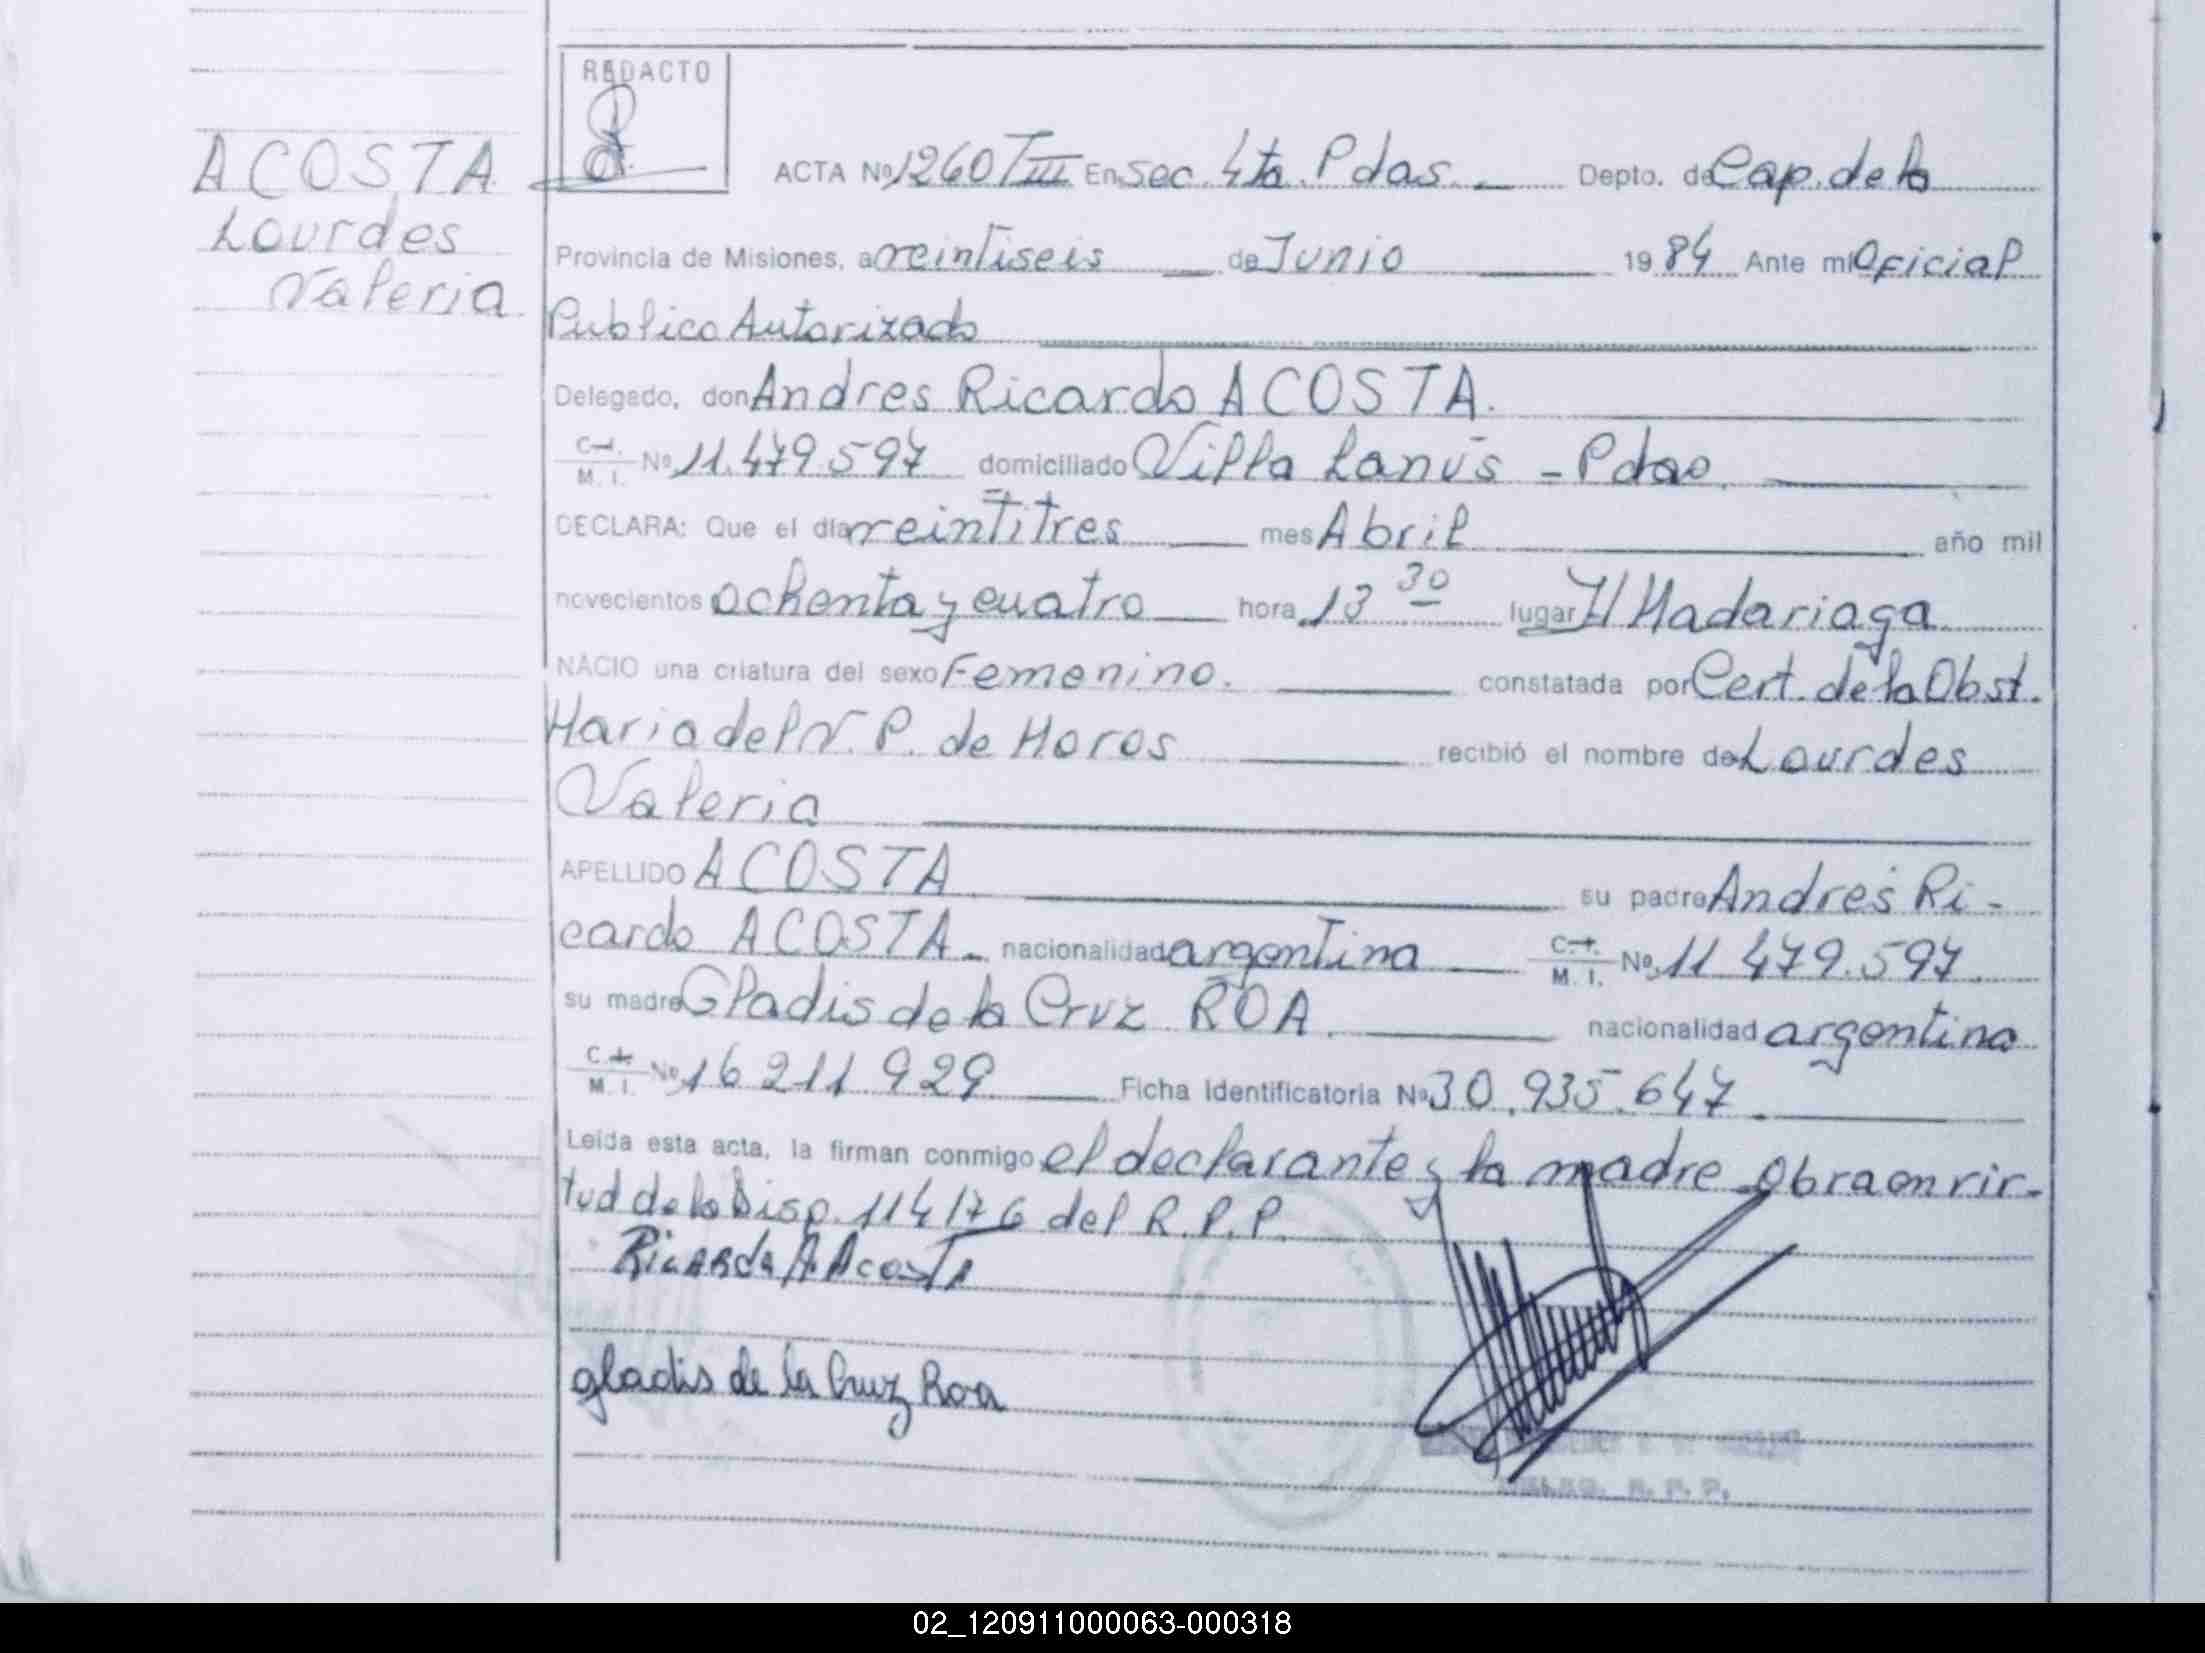 REDACTO
ACOSTA
Lourdes
Valeria
ACTA Nº 1260 TIII En Sec. 4ta. Pdas. Depto. de Cap. de la
Provincia de Misiones, a veintiseis de Junio 1984 Ante mi Oficial
Publico Autorizado
Delegado, don Andres Ricardo ACOSTA.
C.I. M. I. Nº 11.479.597 domiciliado Villa Lanús - Pdas.
DECLARA: Que el día veintitres mes Abril año mil
novecientos ochenta y cuatro hora 13 30 lugar H Madariaga
NACIO una criatura del sexo Femenino. constatada por Cert. de la Obst.
Maria del V. P. de Moros recibió el nombre de Lourdes
Valeria
APELLIDO ACOSTA su padre Andres Ri-
cardo ACOSTA. nacionalidad argentina C.I. M. I. Nº 11 479.597
su madre Gladis de la Cruz ROA. nacionalidad argentina
C.I. M. I. Nº 16 211 929 Ficha Identificatoria Nº 30.935.647.
Leída esta acta, la firman conmigo el declarante y la madre Obra en vir-
tud de la Disp. 114/76 del R.P.P.
Ricardo A. Acosta
gladis de la Cruz Roa
R. P. P.
02_120911000063-000318